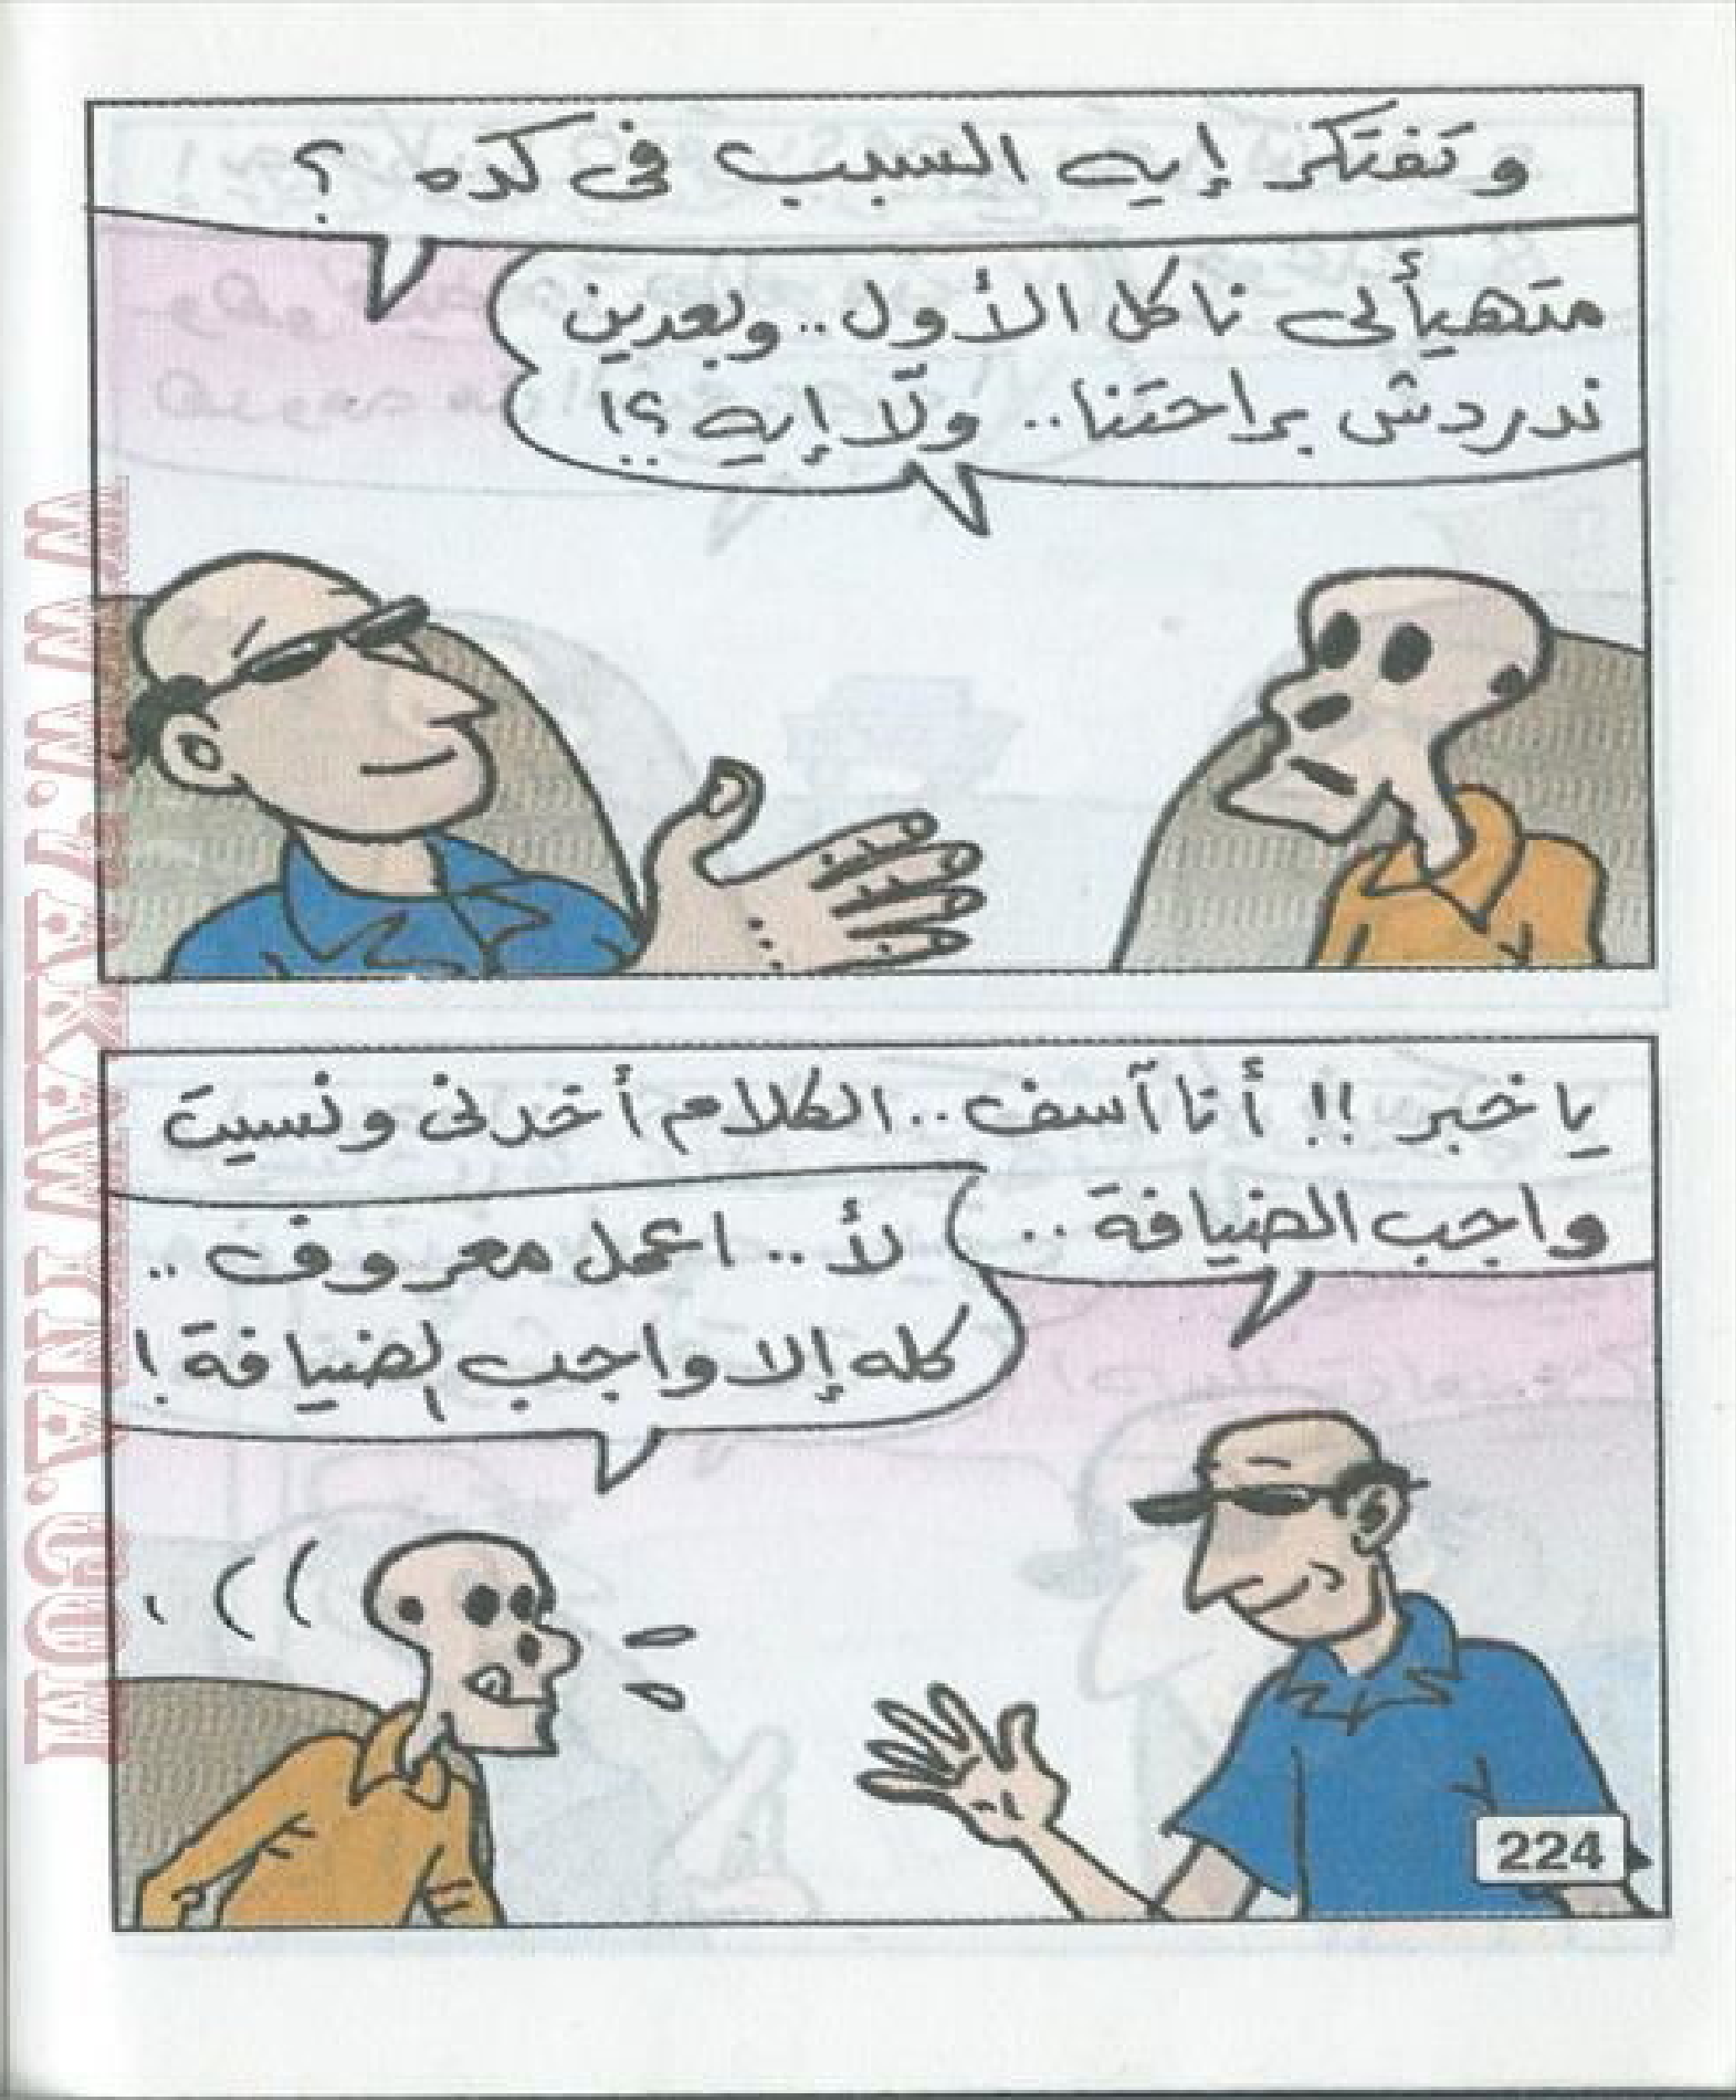 وتفتكر إيه السبب فى كده ؟
متهيألى ناكل الأول .. وبعدين
ندردش براحتنا .. ولّا إيه ؟!
يا خبر !! أنا آسف .. الكلام أخدنى ونسيت
واجب الضيافة ..
لأ .. اعمل معروف ..
كله إلا واجب الضيافة !
224
WWW.TAKAWTINA.COM